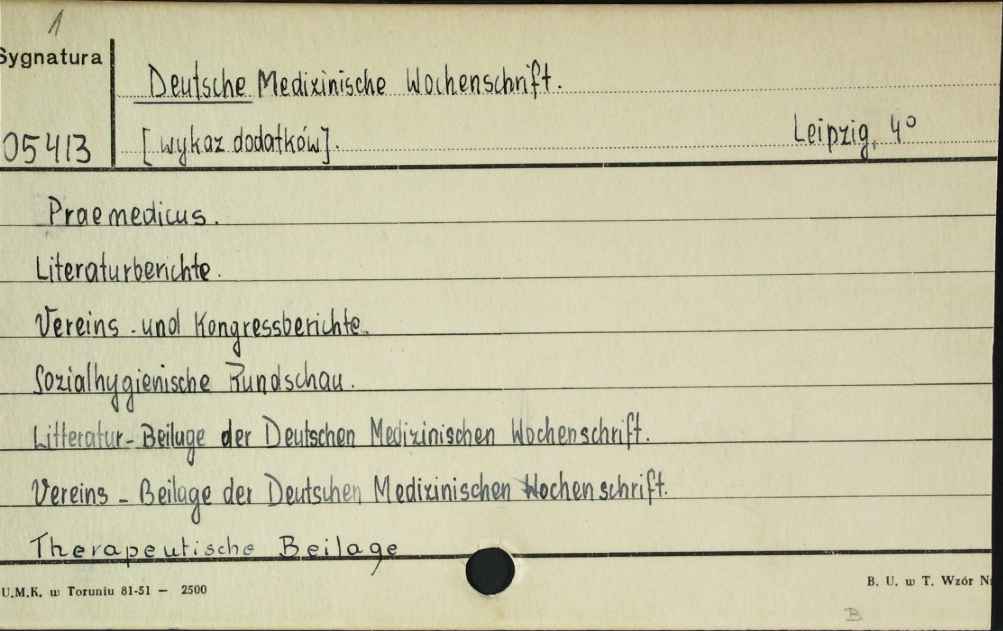 1
Sygnatura
Deutsche Medizinische Wochenschrift.
05413 [wykaz dodatków]. Leipzig, 4°
Praemedicus.
Literaturberichte.
Vereins- und Kongressberichte.
Sozialhygienische Rundschau.
Litteratur-Beilage der Deutschen Medizinischen Wochenschrift.
Vereins-Beilage der Deutschen Medizinischen Wochenschrift.
Therapeutische Beilage
U.M.K. w Toruniu 81-51 — 2500
B. U. w T. Wzór N
B